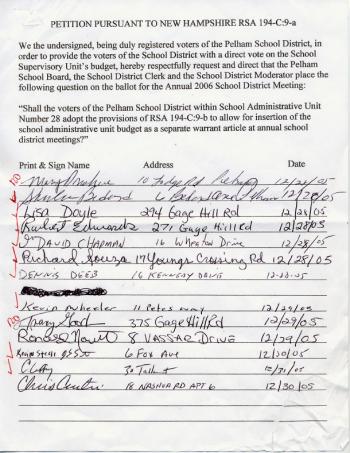 PETITION PURSUANT TO NEW HAMPSHIRE RSA 194-C:9-a
We the undersigned, being duly registered voters of the Pelham School District, in
order to provide the voters of the School District with a direct vote on the School
Supervisory Unit's budget, hereby respectfully request and direct that the Pelham
School Board, the School District Clerk and the School District Moderator place the
following question on the ballot for the Annual 2006 School District Meeting:
"Shall the voters of the Pelham School District within School Administrative Unit
Number 28 adopt the provisions of RSA 194-C:9-b to allow for insertion of the
school administrative unit budget as a separate warrant article at annual school
district meetings?"
Print & Sign Name Address Date
10 Rd Pelham 12/28/05
12/28/05
Lisa Doyle 294 Gage Hill Rd 12/28/05
Edwards 271 Gage Hill Rd 12/28/05
DAVID CHAPMAN 16 Wheaton Drive 12/28/05
Richard Souza 17 Youngs Crossing Rd 12/28/05
DENNIS DEEB 16 KENNEDY DRIVE
Kevin Wheeler 11 way 12/29/05
Tracy 375 Gage Hill Rd 12/29/05
8 VASSAR DRIVE 12/29/05
6 Fox Ave 12/30/05
30
Chris 18 NASHUA RD APT 6 12/30/05